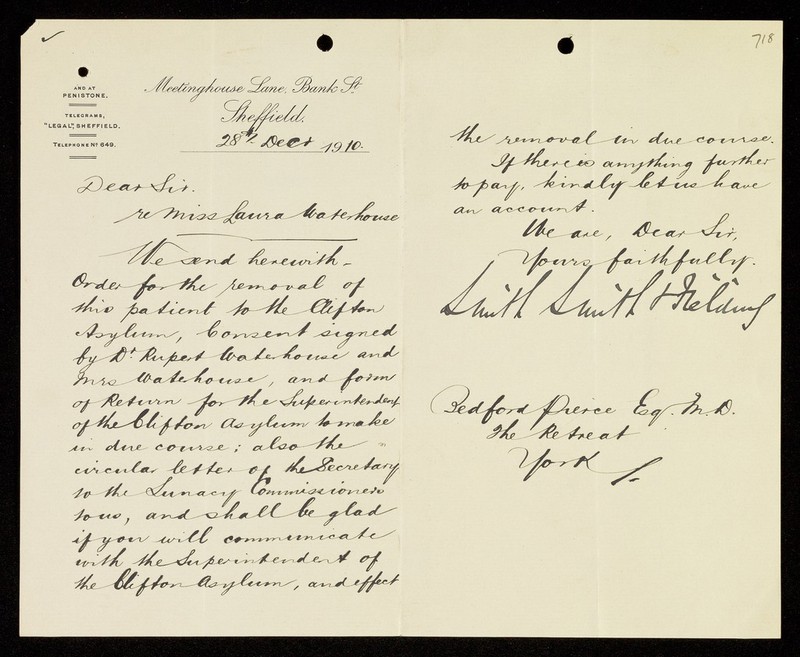 AND AT
PENISTONE.
TELEGRAMS,
"LEGAL", SHEFFIELD.
TELEPHONE Nº 649.
Meetinghouse Lane, Bank St
Sheffield,
28th Decr 1910.
Dear Sir.
re Miss Laura Waterhouse
We send herewith
Order for the removal of
this patient to the Clifton
Asylum, Consent signed
by Dr Rupert Waterhouse and
Mrs Waterhouse, and form
of Return for the Superintendent
of the Clifton Asylum to make
in due course; also the
circular letter of the Secretary
to the Lunacy Commissioners
to us, and shall be glad
if you will communicate
with the Superintendent of
the Clifton Asylum, and effect
718
the removal in due course.
If there is anything further
to pay, kindly let us have
an account.
We are, Dear Sir,
Yours faithfully.
Smith Smith & Fielding
Bedford Pierce Esq. M.D.
The Retreat
York